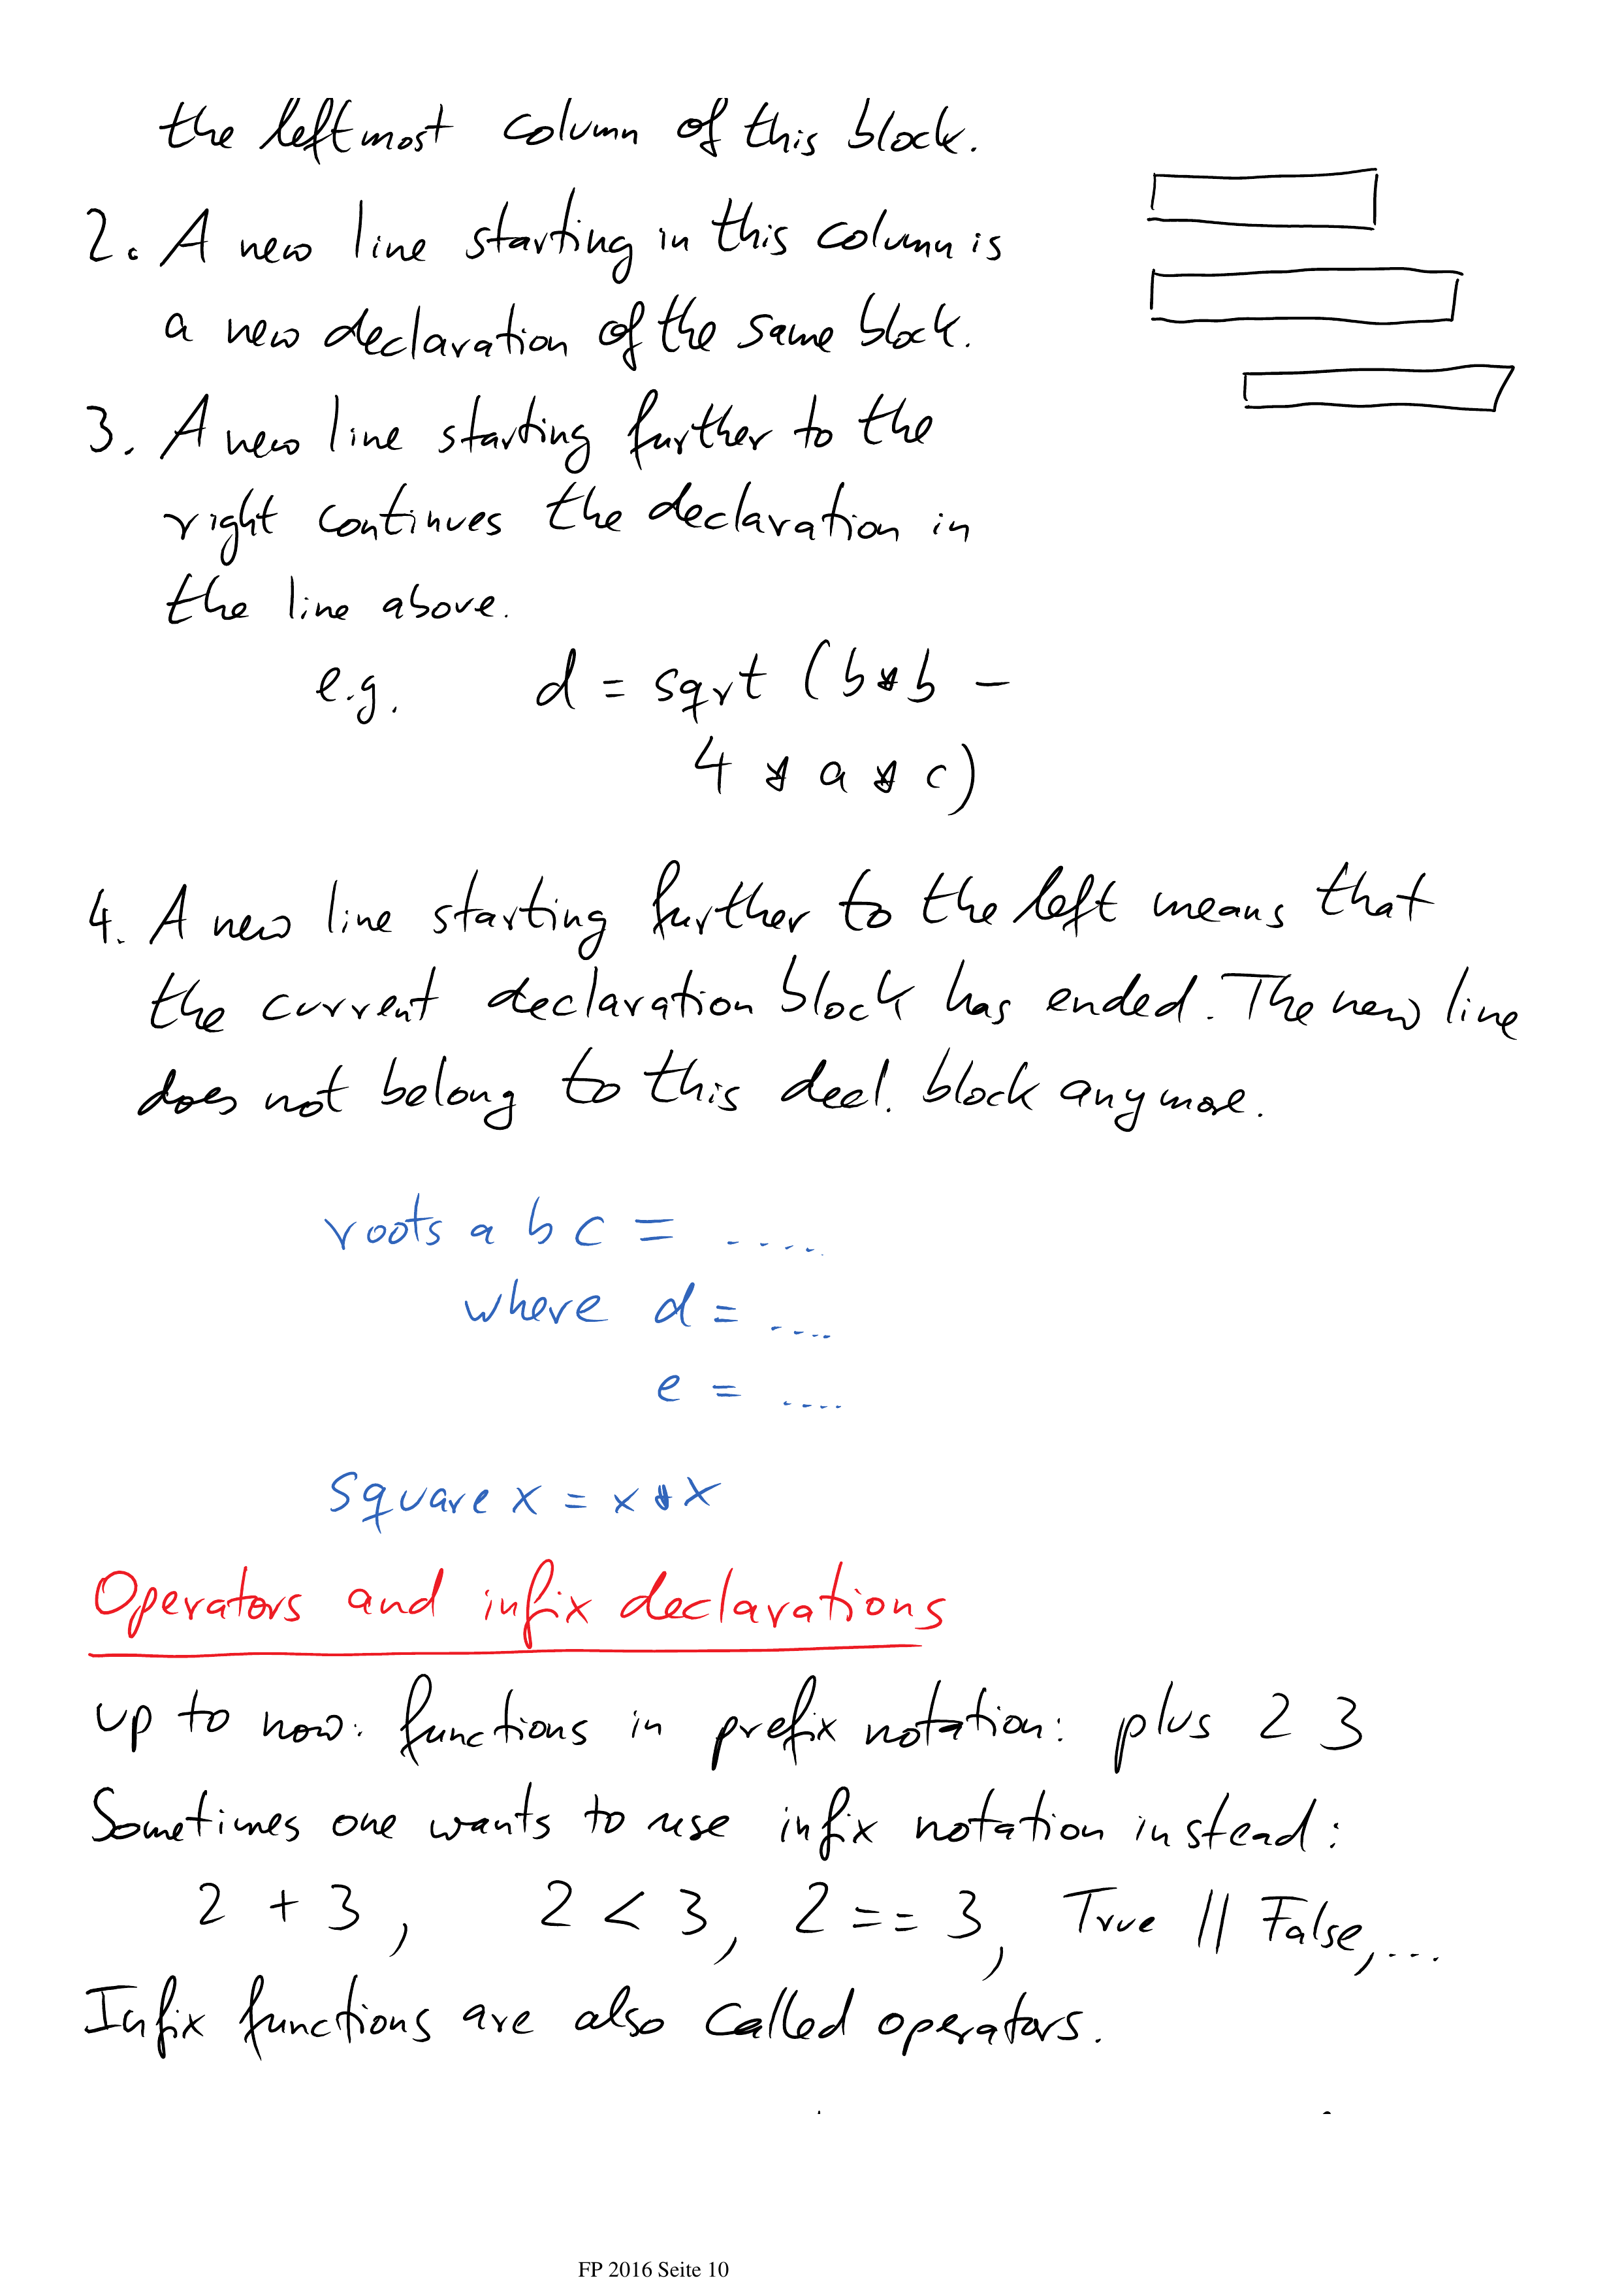 the leftmost column of this block.
2. A new line starting in this column is
a new declaration of the same block.
3. A new line starting further to the
right continues the declaration in
the line above.
e.g. d = sqrt (b*b -
4 * a * c)
4. A new line starting further to the left means that
the current declaration block has ended. The new line
does not belong to this decl. block anymore.
roots a b c = .....
where d = ....
e = ....
square x = x * x
Operators and infix declarations
up to now: functions in prefix notation: plus 2 3
Sometimes one wants to use infix notation instead:
2 + 3, 2 < 3, 2 == 3, True || False, ...
Infix functions are also called operators.
FP 2016 Seite 10